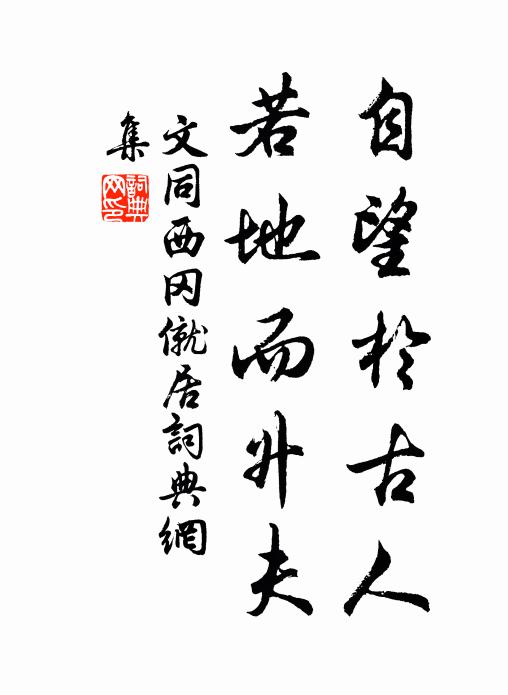 自望於古人
若地而升夫
文同西冈僦居詞典網
集
詞典网印